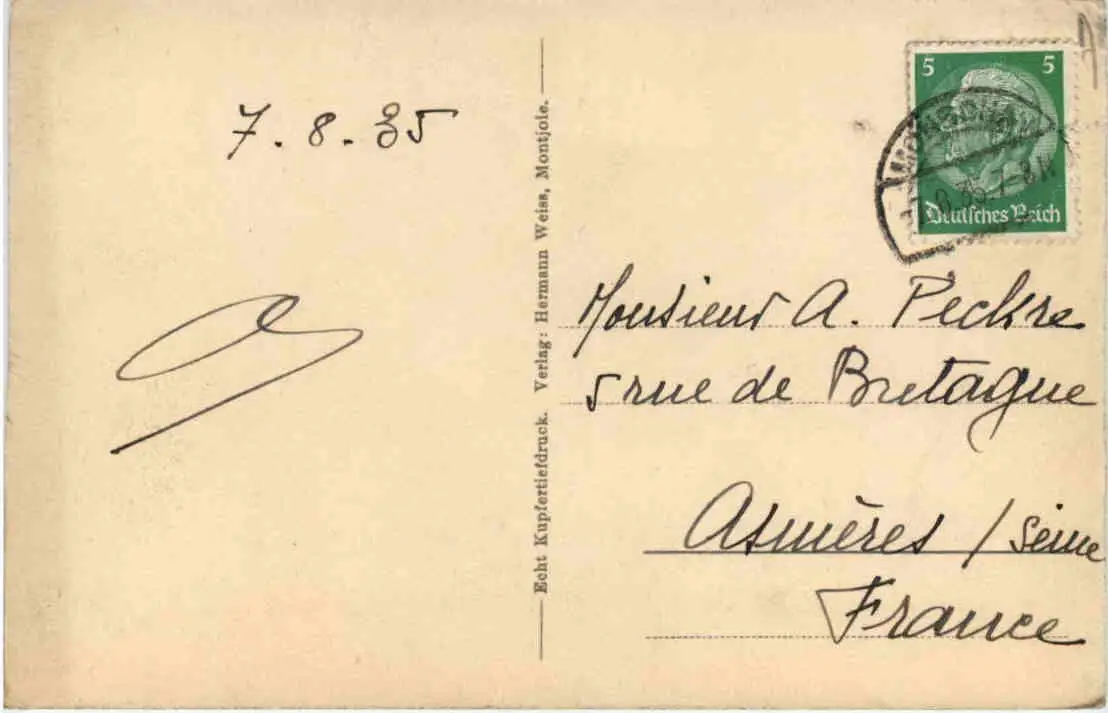 7.8.35
Echt Kupfertiefdruck. Verlag: Hermann Weiss, Montjoie.
5 5
Deutsches Reich
Monsieur A. Peckre
5 rue de Bretagne
Asnières / Seine
France